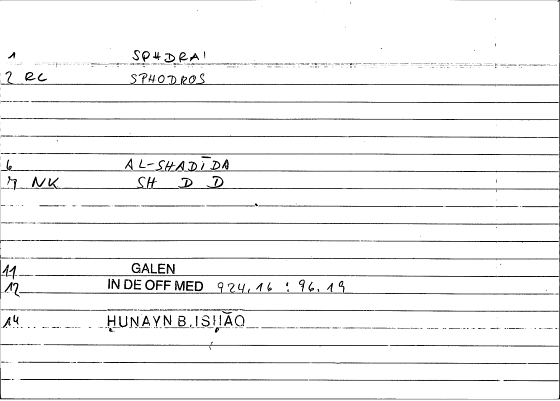 1 SPHDRA'
2 RC SPHODROS
6 AL-SHADĪDA
7 NK SH D D
11 GALEN
12 IN DE OFF MED 924.16 : 96.19
14 ḤUNAYN B.ISḤĀQ